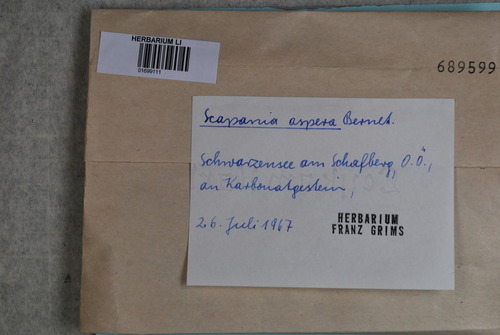 HERBARIUM LI
01699111
689599
Scapania aspera Bernet.
Schwarzensee am Schafberg, O.Ö.,
an Karbonatgestein,
26. Juli 1967
HERBARIUM
FRANZ GRIMS